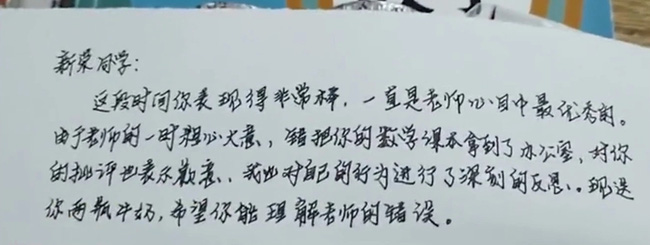 新荣同学：
这段时间你表现得非常棒，一直是老师心目中最优秀的。
由于老师的一时粗心大意，错把你的数学课本拿到了办公室，对你
的批评也表示歉意，我也对自己的行为进行了深刻的反思。现送
你两瓶牛奶，希望你能理解老师的错误。